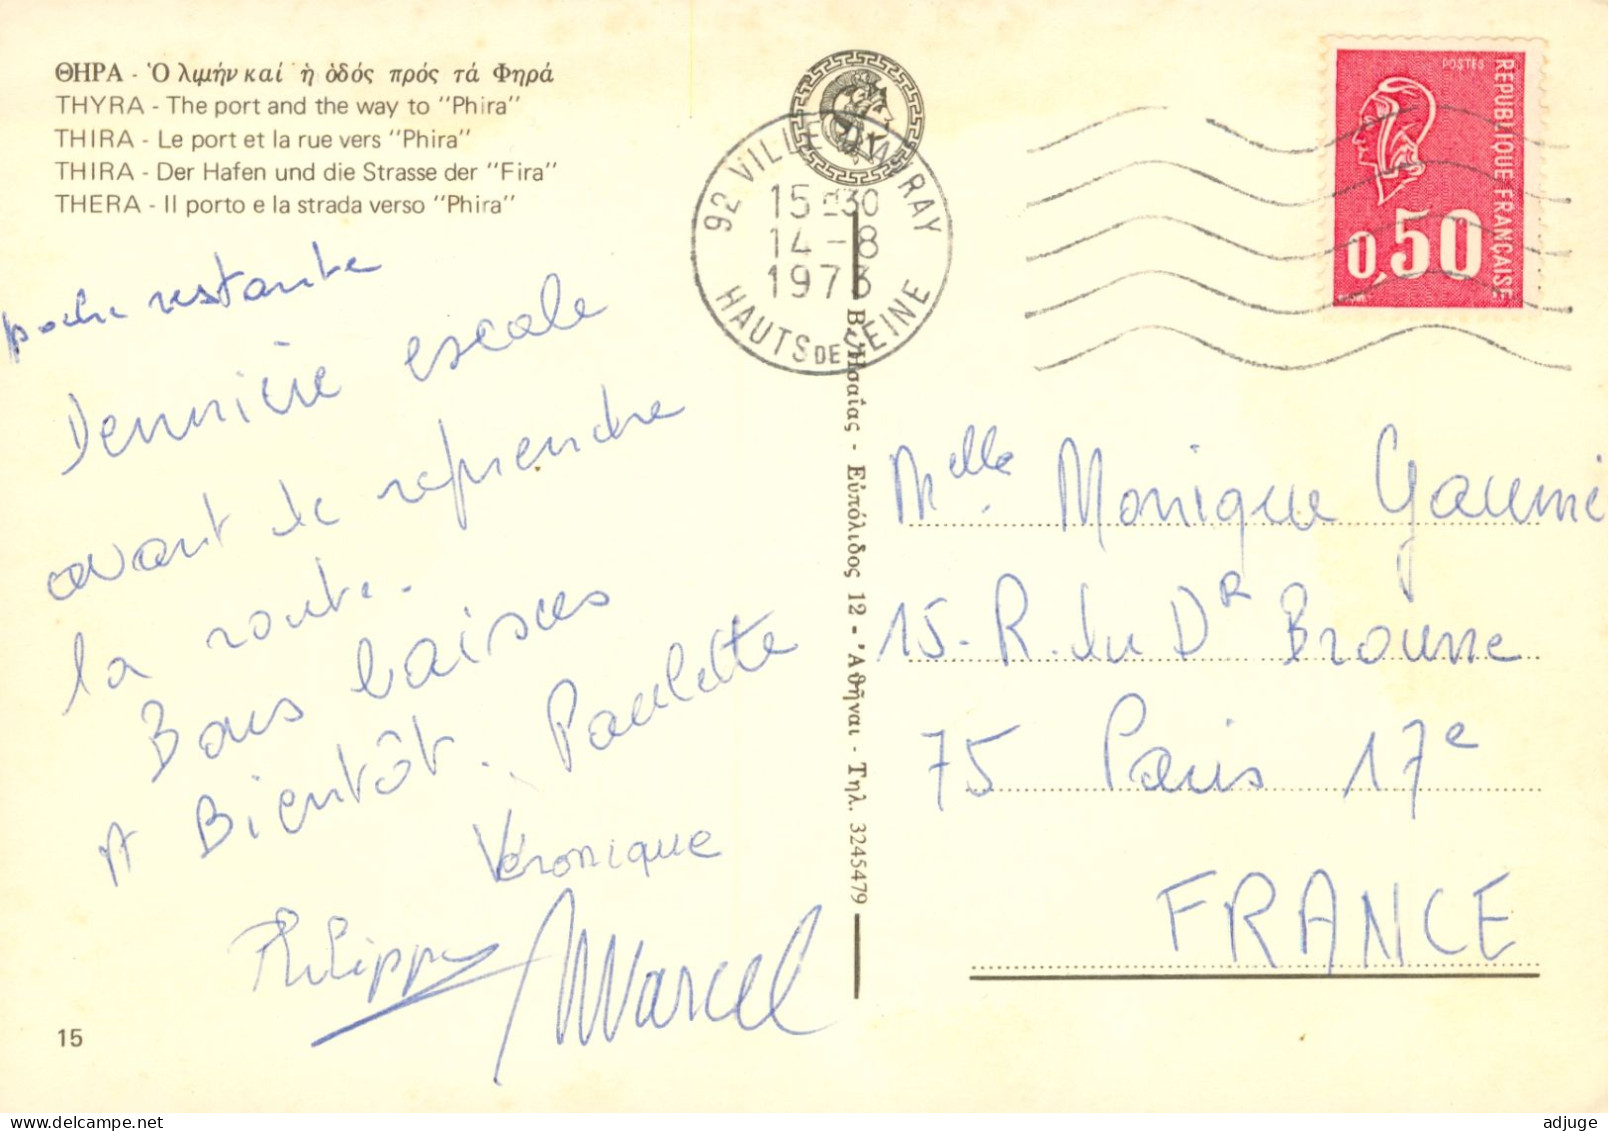 ΘΗΡΑ - Ὁ λιμήν καί ἡ ὁδός πρός τά Φηρά
THYRA - The port and the way to "Phira"
THIRA - Le port et la rue vers "Phira"
THIRA - Der Hafen und die Strasse der "Fira"
THERA - Il porto e la strada verso "Phira"
restante
Dernière escale
avant de reprendre
la route.
Bons baisers
A Bientôt. Paulette
Véronique
Philippe
Marcel
15
92 VILLE RAY
15 30
14-8
1973
HAUTS DE SEINE
Ἡσαΐας - Εὐπόλιδος 12 - Ἀθῆναι - Τηλ. 3245479
POSTES
REPUBLIQUE FRANÇAISE
0,50
Melle Monique Gaumé
15-R. du DR Brousse
75 Paris 17e
FRANCE
www.delcampe.net
adjuge